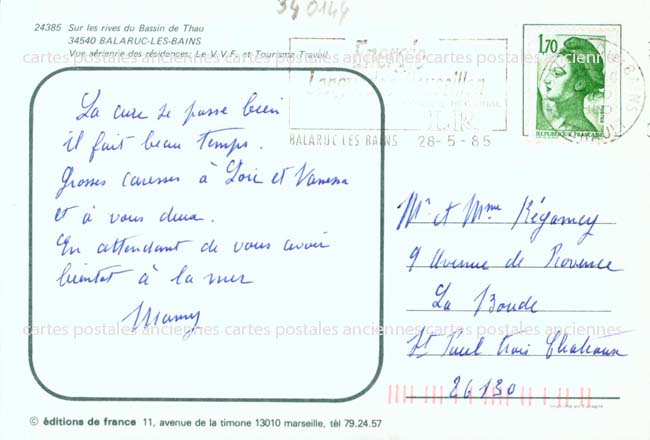 34 0144
24385 Sur les rives du Bassin de Thau
34540 BALARUC-LES-BAINS
Vue aérienne des résidences: Le V.V.F. et Tourisme Travail
La cure se passe bien
il fait beau temps.
Grosses caresses à Loïc et Vanessa
et à vous deux.
En attendant de vous avoir
bientot à la mer
Mamy
BALARUC LES BAINS 28-5-85
1,70
REPUBLIQUE FRANÇAISE
Mr et Mme Régamey
9 Avenue de Provence
La Boude
St Paul trois Chateaux
26130
cartes postales anciennes cartes postales anciennes cartes postales anciennes
cartes postales anciennes cartes postales anciennes cartes postales anciennes
© éditions de france 11, avenue de la timone 13010 marseille, tél 79.24.57